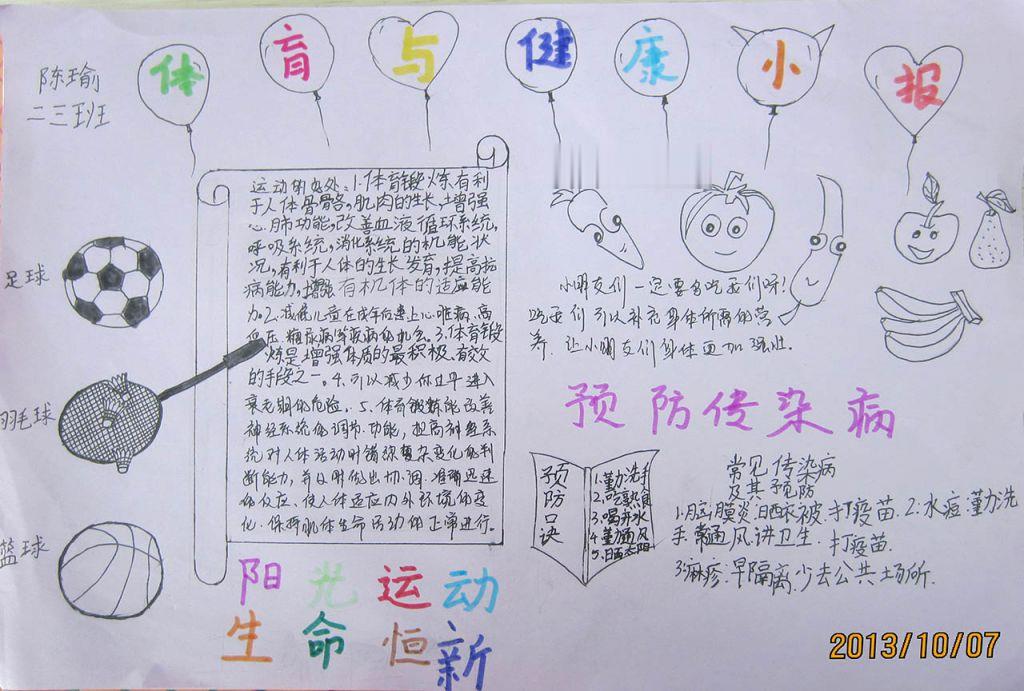 体育与健康小报
陈瑜
二三班
足球
羽毛球
篮球
运动的好处:1.体育锻炼有利
于人体骨骼,肌肉的生长,增强
心肺功能,改善血液循环系统,
呼吸系统,消化系统的机能状
况,有利于人体的生长发育,提高抗
病能力,增强有机体的适应能
力。2.减低儿童在成年后患上心脏病,高
血压,糖尿病等疾病的机会。3.体育锻
炼是增强体质的最积极、有效
的手段之一。4.可以减少你过早进入
衰老期的危险。5.体育锻炼能改善
神经系统的调节功能,提高神经系
统对人体活动时错综复杂变化的判
断能力,并及时做出协调、准确迅速
的反应,使人体适应内外环境的变
化,保持肌体生命活动的正常进行。
阳光运动
生命恒新
小朋友们一定要多吃我们呀!
吃我们可以补充身体所需的营
养,让小朋友们身体更加强壮。
预防传染病
预防口诀
1.勤洗手
2.吃熟食
3.喝开水
4.勤通风
5.晒太阳
常见传染病
及其预防
1.脑膜炎:晒衣被.打疫苗.2.水痘:勤洗
手.常通风.讲卫生.打疫苗.
3.麻疹:早隔离.少去公共场所.
2013/10/07